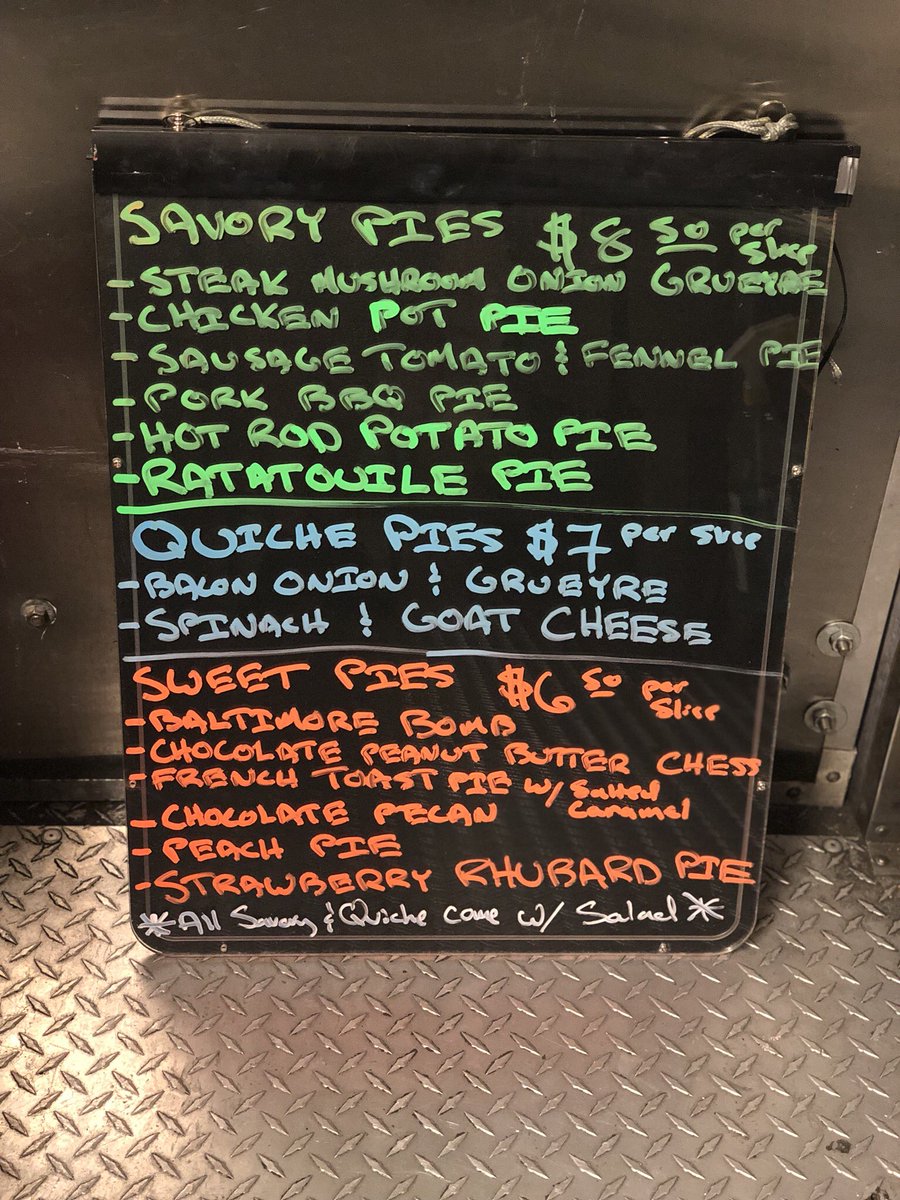 SAVORY PIES $8 50 per Slice
- STEAK MUSHROOM ONION GRUEYRE
- CHICKEN POT PIE
- SAUSAGE TOMATO & FENNEL PIE
- PORK BBQ PIE
- HOT ROD POTATO PIE
- RATATOUILE PIE
QUICHE PIES $7 per Slice
- BACON ONION & GRUEYRE
- SPINACH & GOAT CHEESE
SWEET PIES $6 50 per Slice
- BALTIMORE BOMB
- CHOCOLATE PEANUT BUTTER CHESS
- FRENCH TOAST PIE W/ Salted Caramel
- CHOCOLATE PECAN
- PEACH PIE
- STRAWBERRY RHUBARD PIE
* All Savory & Quiche come w/ Salad *